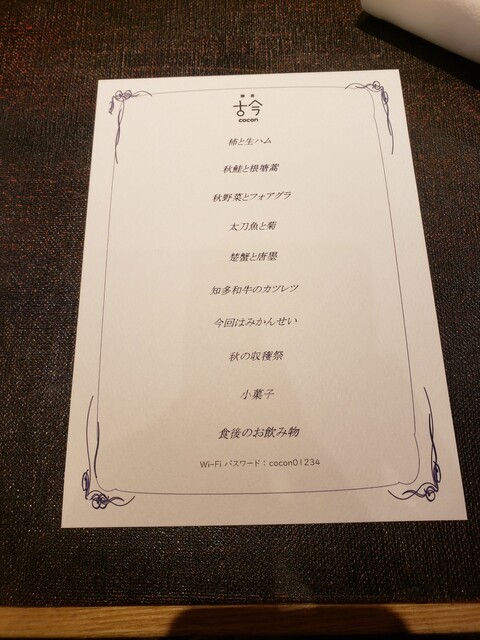 古今
cocon
柿と生ハム
秋鮭と根塘蒿
秋野菜とフォアグラ
太刀魚と菊
楚蟹と唐墨
知多和牛のカツレツ
今回はみかんせい
秋の収穫祭
小菓子
食後のお飲み物
Wi-Fi パスワード：cocon01234